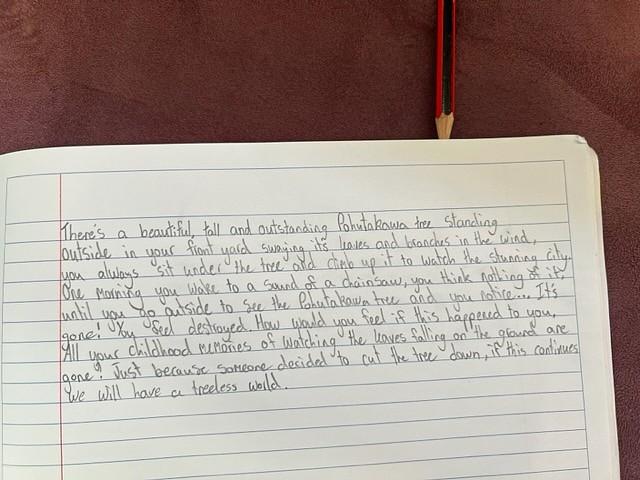 There's a beautiful, tall and outstanding Pohutakawa tree standing
outside in your front yard swaying it's leaves and branches in the wind,
you always sit under the tree and climb up it to watch the stunning city.
One morning you wake to a sound of a chainsaw, you think nothing of it,
until you go outside to see the Pohutakawa tree and you notice... It's
gone! You feel destroyed. How would you feel if this happened to you,
All your childhood memories of watching the leaves falling on the ground are
gone? Just because someone decided to cut the tree down, if this continues
we will have a treeless world.